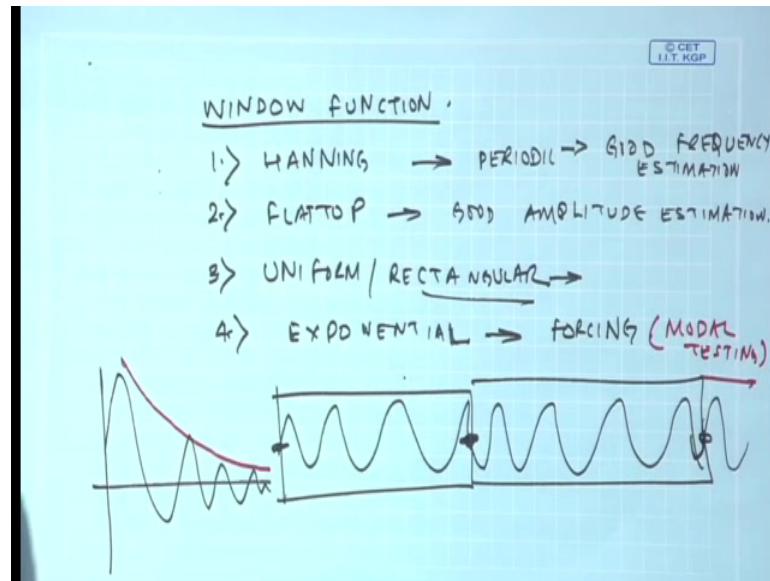 © CET
I.I.T. KGP
WINDOW FUNCTION.
1.) HANNING → PERIODIC → GOOD FREQUENCY
ESTIMATION
2.) FLATTOP → GOOD AMPLITUDE ESTIMATION.
3) UNIFORM / RECTANGULAR →
4.) EXPONENTIAL → FORCING (MODAL
TESTING)